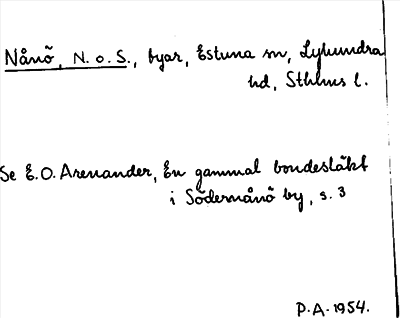 Nånö, N. o. S., byar, Estuna sn, Lyhundra
hd, Sthlms l.
Se E.O. Arenander, En gammal bondesläkt
i Södernånö by, s. 3
P.A. 1954.